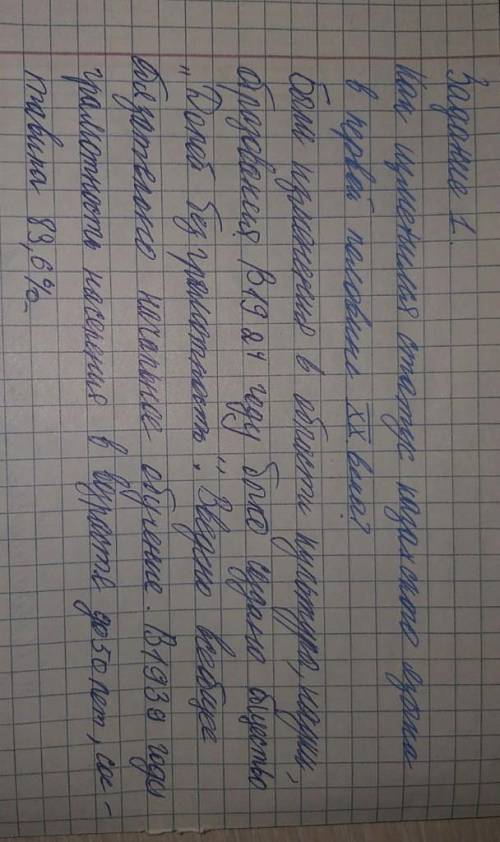 Задание 1.
Как изменился статус казахского языка
в первой половине XX века?
Были изменения в области культуры, науки,
образования. В 1924 году было создано общество
"Долой безграмотность". Введено всеобщее
обязательное начальное обучение. В 1939 году
грамотность населения в возрасте до 50 лет, сос-
тавила 83,6%